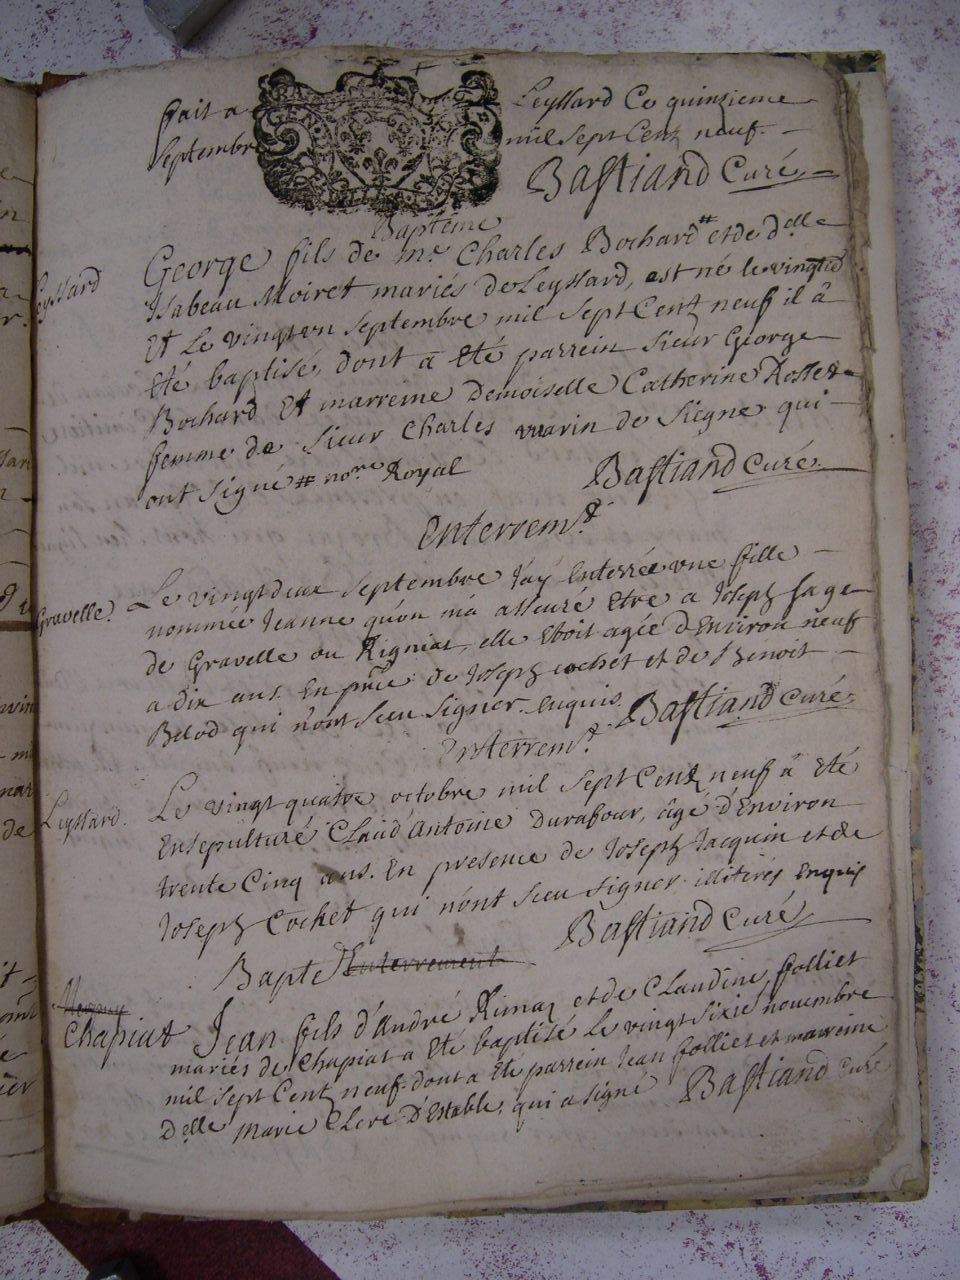 fait a Leyssard Ce quinzieme
Septembre mil sept Cent neuf.
Bastiand Curé
Baptême
Leyssard
George fils de mr. Charles Bochard # et de delle
Isabeau Moiret mariés de Leyssard, est né le vingtie
Et Le vingt un septembre mil sept Cent neuf il â
Eté baptisé, dont a Eté parrein sieur George
Bochard Et marreine Demoiselle Catherine
femme de sieur Charles de Siegne qui
ont signé # nore. Royal Bastiand Curé
Enterremt.
Gravelle.
Le vingt deux septembre j'ay Enterrée une fille
nommée Jeanne qu'on m'a asseuré Etre a Joseph sage
de Gravelle ou Rigniat, elle Etoit agée d'Environ neuf
a dix ans. En pñce de Joseph cochet et de Benoit
Belod qui n'ont sceu signer Enquis Bastiand Curé
Enterremt.
Leyssard.
Le vingt quatre octobre mil sept Cent neuf â Eté
Ensepulturé Claud'Antoine Durafour, âgé d'Environ
trente Cinq ans. En presence de Joseph Jacquin et de
Joseph Cochet qui n'ont sceu signer illiterés Enquis
Bastiand Curé
Bapte Enterrement
Chapiat
Jean fils d'André et de Claudine folliet
mariés de Chapiat a Eté baptisé Le vingt sixie nouembre
mil sept Cent neuf. dont a Eté parrein Jean folliet et marreine
Delle Marie Clere D'Estables, qui a signé Bastiand Curé